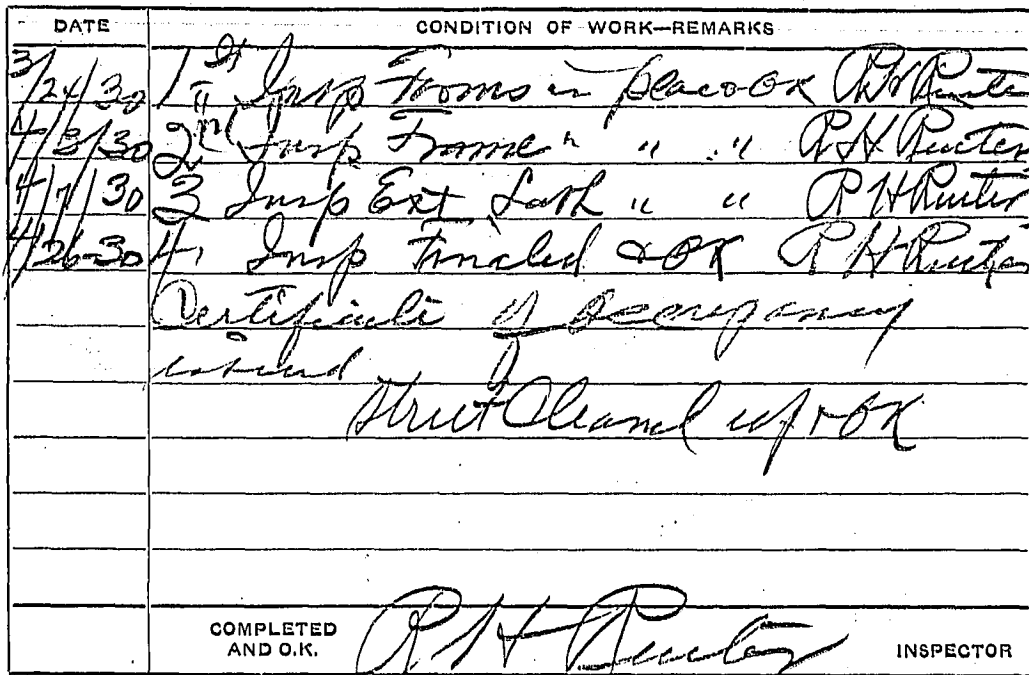 DATE CONDITION OF WORK—REMARKS
3/24/30 1st Insp Froms in place OK R H Ruiter
4/3/30 2nd Insp Frame " " " R H Ruiter
4/7/30 3 Insp Ext Lath " " R H Ruiter
4/26-30 4, Insp Finaled & OK R H Ruiter
Certificate of Occupancy
issued
Street Cleaned up & OK
COMPLETED AND O.K. R H Ruiter INSPECTOR